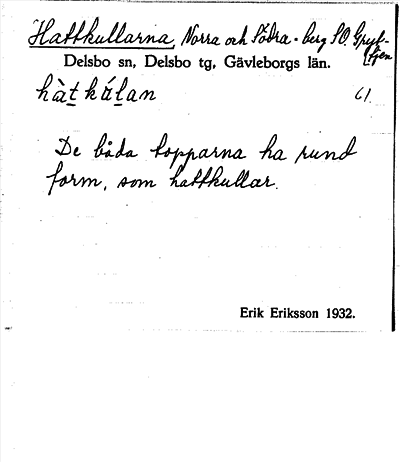 Hattkullarna, Norra och Södra - berg SO. Gryt-
tjen
Delsbo sn, Delsbo tg, Gävleborgs län.
hàt káḻan 61
De båda topparna ha rund
form, som hattkullar.
Erik Eriksson 1932.